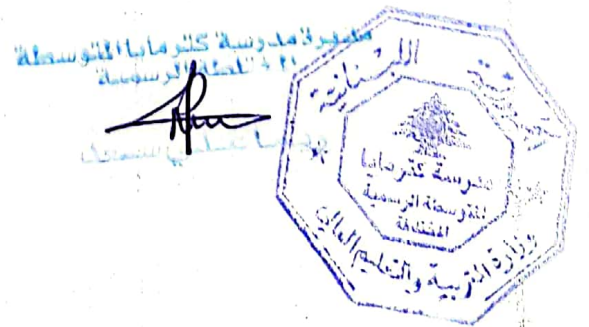 مديرة مدرسة كترمايا المتوسطة
المختلطة الرسمية
الجمهورية اللبنانية
مدرسة كترمايا
المتوسطة الرسمية
المختلطة
وزارة التربية والتعليم العالي